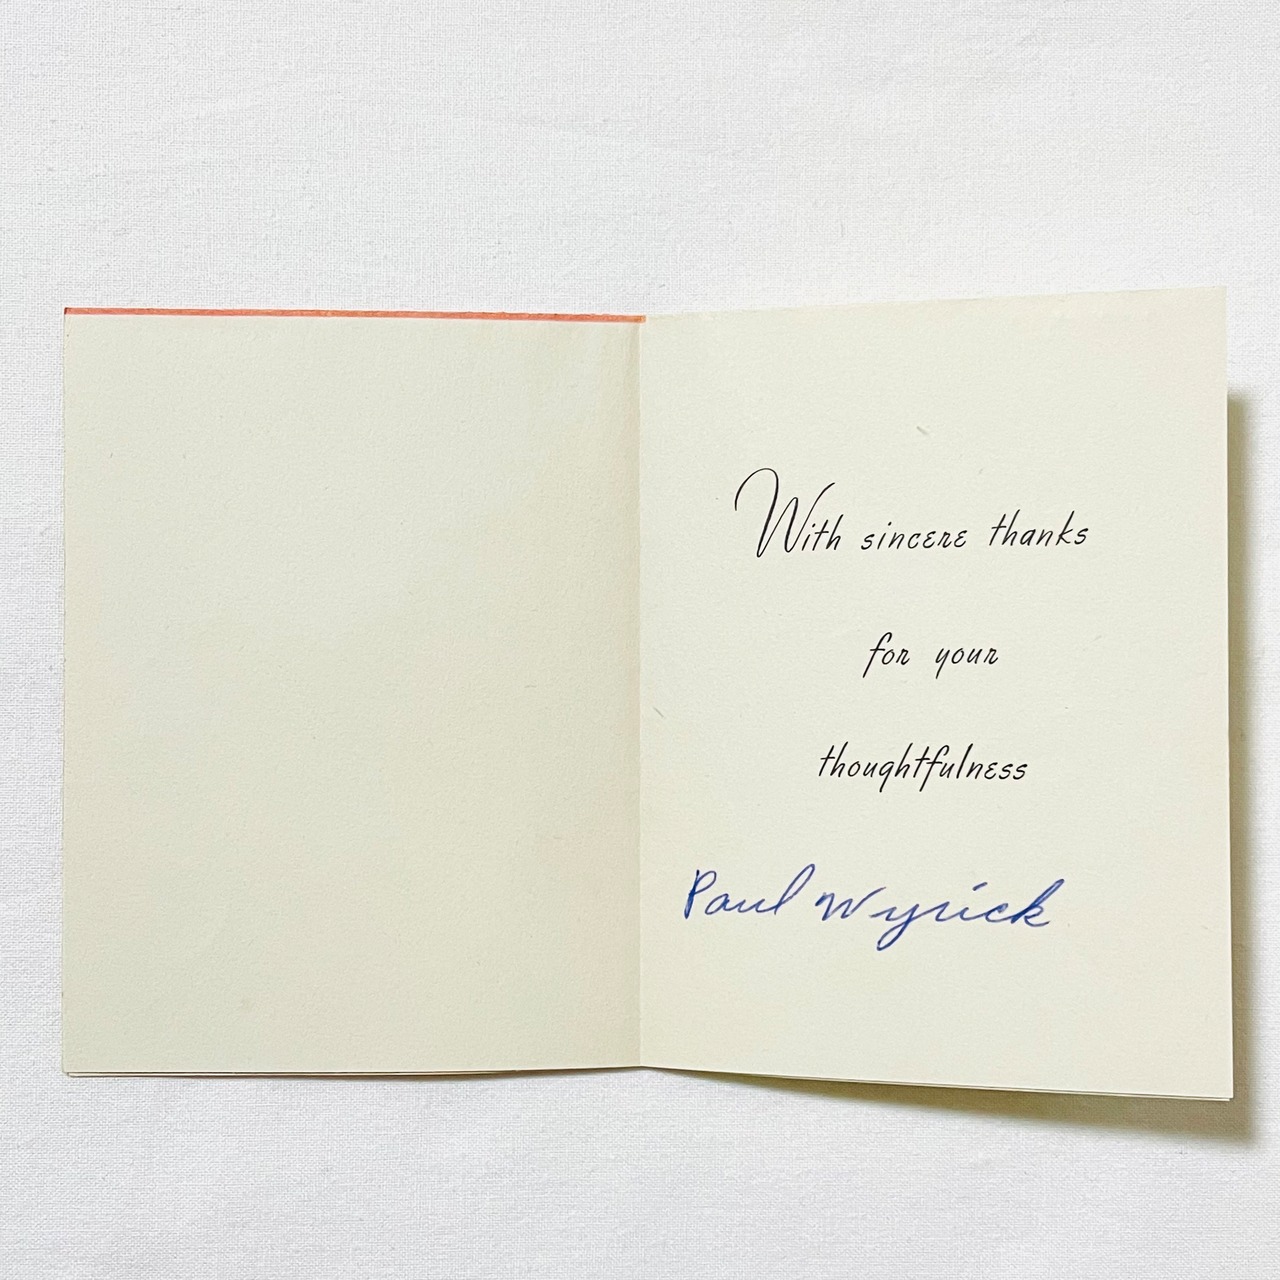 With sincere thanks
for your
thoughtfulness
Paul Wyrick